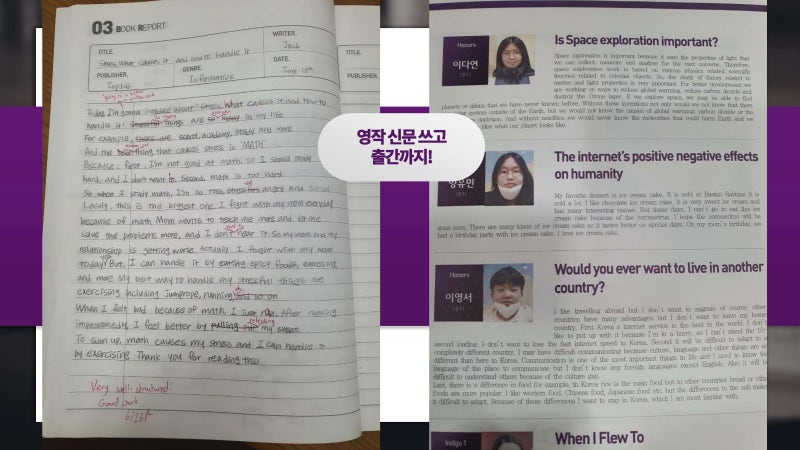 03 BOOK REPORT
TITLE.
Stress What causes it and how to handle it
PUBLISHER.
GENRE.
Informative
WRITER.
Jack
DATE.
June 15th
TITLE.
PUBLISHER
Today I'm gonna about Stress What causes it and how to
handle it. Stressful things are in my life
For example, there are school, academy, study and more
And the thing that causes stress is 'MATH'
Because, first. I'm not good at math so I should study
hard, and I don't want it. Second, math is too hard
So when I study math, I'm so tired, stressful angry and so on
Lastly, this is the biggest one I fight with my mom everyday
because of math Mom wants to teach me more and let me
solve the problems more, and I don't hear it. So my mom and my
relationship is getting worse Actually I fought with my mom
today But, I can handle it by eating spicy foods, exercising
and more. My best way to handle my stressful things are
exercising including Jumprope, running, and so on
When I felt bad because of math, I After running
impassionedly, I feel better by pulling out my sweat
To sum up, math causes my stress and I can handle it
by exercising Thank you for reading this!
Very well-structured!
Good job
6/26
영작 신문 쓰고
출간까지!
Honors
이다연
Is Space exploration important?
Space exploration is important because it uses the properties of light that
we can collect, measure and analyze for the vast universe. Therefore,
space exploration work is based on various physics related scientific
theories related to celestial objects. So, the study of theory related to
matter and light properties is very important. For better development we
are working on ways to reduce global warming, reduce carbon dioxide and
destroy the Ozone layer. If we explore space, we may be able to find
planets or aliens that we have never known before. Without these inventions not only would we not know that there
system outside of the Earth, but we would not know the causes of global warming, carbon dioxide or the
depletion. And without satellites we would never know the meteorites that could harm Earth and we
idea what our planet looks like.
유민
The internet's positive negative effects
on humanity
My favorite dessert is ice cream cake. It is sold at Baskin Robbins It is
sold a lot. I like chocolate ice cream cake. It is very sweet ice cream and
has many interesting names. But these days, I can't go to eat this ice
cream cake because of the coronavirus. I hope the coronavirus will be
gone soon. There are many kinds of ice cream cake so it tastes better on special days. On my mom's birthday, we
had a birthday party with ice cream cake. I love ice cream cake.
Honors
이영서
Would you ever want to live in another
country?
I like travelling abroad but I don't want to migrate of course, other
countries have many advantages but I don't want to leave my home
country, First Korea's internet service is the best in the world. I don't
like to put up with it because I'm in a hurry, so I can't stand the 10-
second loading. I don't want to lose the fast internet speed in Korea. Second it will be difficult to adapt to a
completely different country. I may have difficult communicating because culture, language and other things are so
different than here in Korea. Communication is one of the most important things in life and I need to know the
language of the place to communicate but I don't know any foreign languages except English. Also it will be
difficult to understand others because of the culture gap.
Last, there is a difference in food for example, in Korea rice is the main food but in other countries bread or other
foods are more popular. I like western food, Chinese food, Japanese food etc, but the differences in the salt makes
it difficult to adapt. Because of these differences I want to stay in Korea, which I am most familiar with.
Indigo 1
When I Flew To